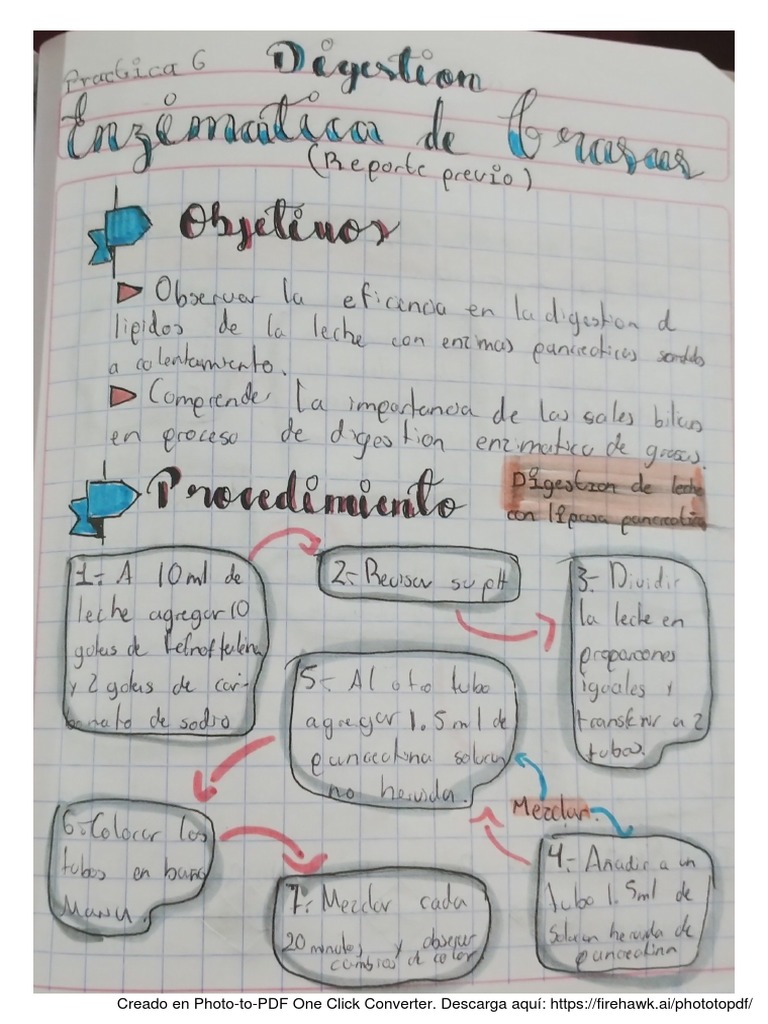 Practica 6 Digestion
Enzimática de Grasas
(Reporte previo)
Objetivos
Observar la eficencia en la digestion d
lipidos de la leche con enzimas pancreaticas
a calentamiento.
Comprender la importancia de las sales biliares
en proceso de digestion enzimatica de grasas.
Procedimiento
Digestion de leche
con lipasa pancreatica
1- A 10 ml de
leche agregar 10
gotas de
y 2 gotas de car-
bonato de sodio
2- Revisar su pH
3- Dividir
la leche en
proporciones
iguales y
transferir a 2
tubos.
Mezclar.
4- Añadir a un
tubo 1.5ml de
solucion hervida de
pancreatina
5- Al otro tubo
agregar 1.5 ml de
pancreatina solucion
no hervida.
6- Colocar los
tubos en baño
Maria.
7- Mezclar cada
20 minutos y observar
cambios de color
Creado en Photo-to-PDF One Click Converter. Descarga aquí: https://firehawk.ai/phototopdf/